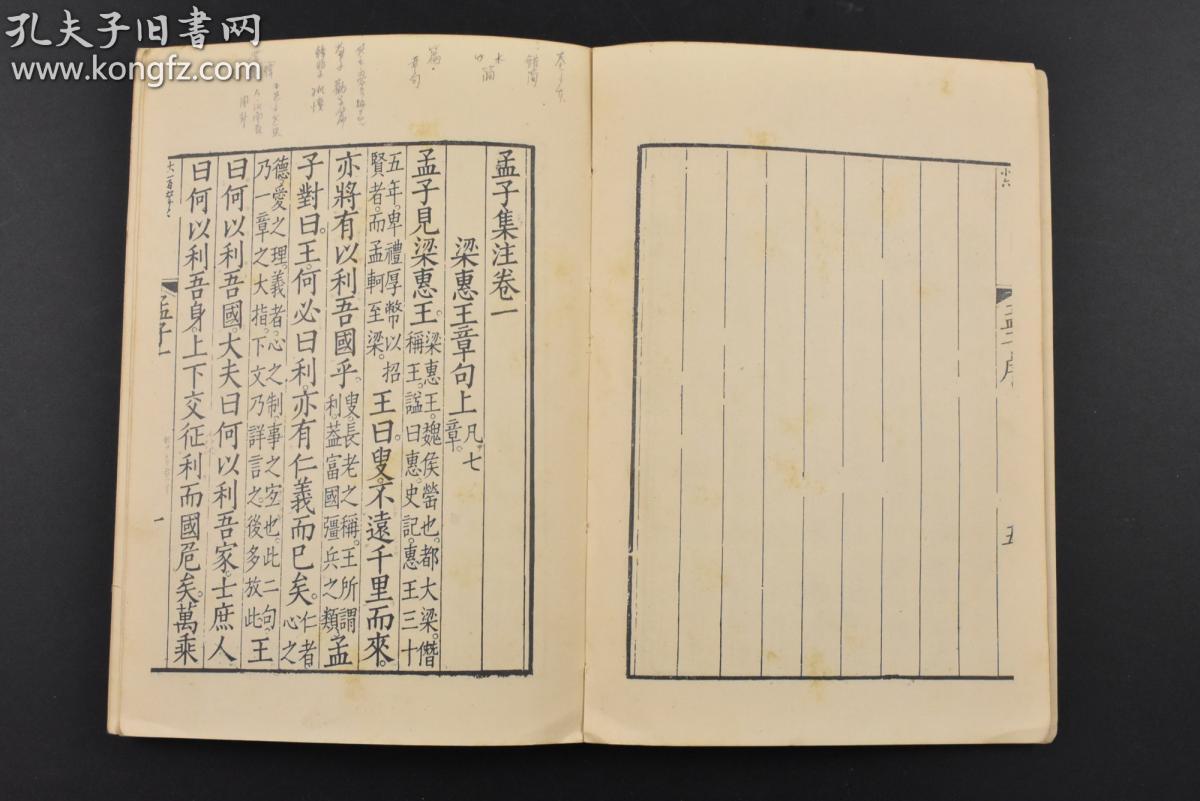 孔夫子旧书网
www.kongfz.com
小六
五
孟子集注卷一
梁惠王章句上 凡七章。
孟子見梁惠王。梁惠王。魏侯罃也。都大梁。僭稱王。諡曰惠。史記。惠王三十
五年。卑禮厚幣以招賢者。而孟軻至梁。王曰。叟。不遠千里而來。
亦將有以利吾國乎。叟。長老之稱。王所謂利。蓋富國彊兵之類。孟
子對曰。王。何必曰利。亦有仁義而已矣。仁者。心之
德愛之理。義者。心之制。事之宜也。此二句。乃一章之大指。下文乃詳言之。後多放此。王
曰何以利吾國。大夫曰何以利吾家。士庶人
曰何以利吾身。上下交征利而國危矣。萬乘
孟子一
一